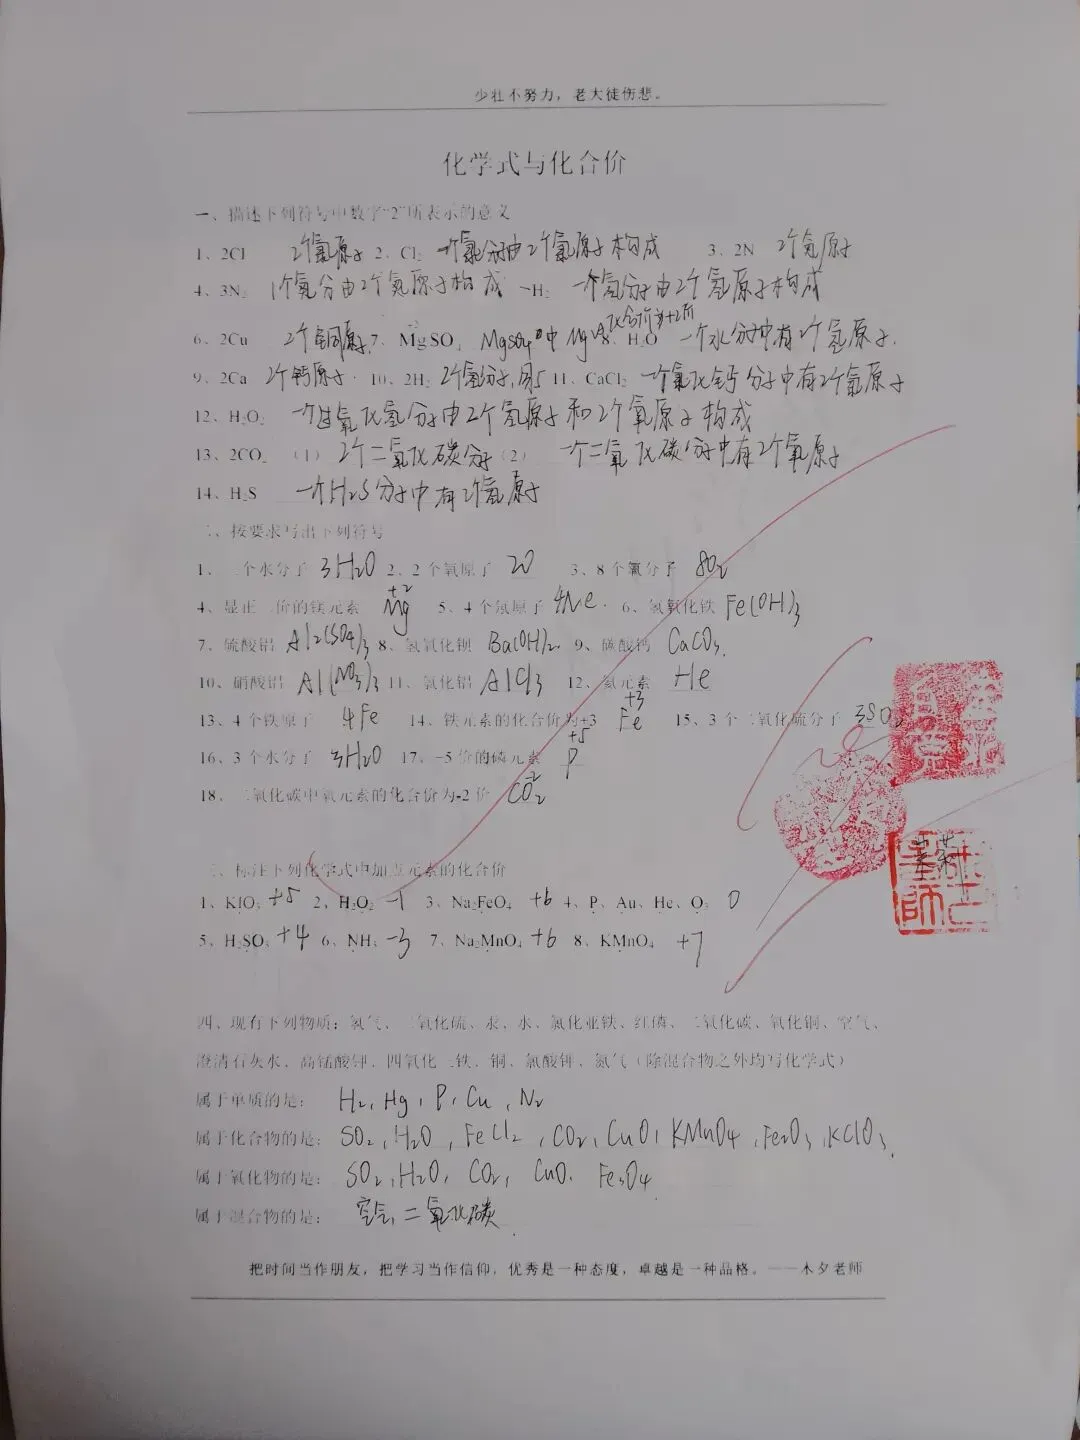 少壮不努力，老大徒伤悲。
化学式与化合价
一、描述下列符号中数字“2”所表示的意义
1、2Cl 2个氯原子 2、Cl₂ 一个氯分子由2个氯原子构成 3、2N 2个氮原子
4、3N₂ 1个氮分由2个氮原子构成 H₂ 一个氢分子由2个氢原子构成
6、2Cu 2个铜原子 7、MgSO₄ MgSO₄中Mg 化合价为+2价 8、H₂O 一个水分子中有2个氢原子.
9、2Ca 2个钙原子. 10、2H₂ 2个氢分子, 11、CaCl₂ 一个氯化钙分子中有2个氯原子
12、H₂O₂ 一个过氧化氢分子由2个氢原子和2个氧原子构成
13、2CO₂ （1） 2个二氧化碳分子（2） 一个二氧化碳分子中有2个氧原子
14、H₂S 一个H₂S分子中有2个氢原子
二、按要求写出下列符号
1、三个水分子 3H₂O 2、2个氧原子 2O 3、8个氧分子 8O₂
4、显正二价的镁元素 +2 Mg 5、4个氖原子 4Ne. 6、氢氧化铁 Fe(OH)₃
7、硫酸铝 Al₂(SO₄)₃ 8、氢氧化钡 Ba(OH)₂. 9、碳酸钙 CaCO₃.
10、硝酸铝 Al(NO₃)₃ 11、氯化铝 AlCl₃ 12、氦元素 He
13、4个铁原子 4Fe 14、铁元素的化合价为+3 +3 Fe 15、3个二氧化硫分子 3SO₂
16、3个水分子 3H₂O 17、-5价的磷元素 +5 P
18、二氧化碳中氧元素的化合价为-2价 -2 CO₂
三、标注下列化学式中加点元素的化合价
1、KIO₃ +5 2、H₂O₂ -1 3、Na₂FeO₄ +6 4、P、Au、He、O₃ 0
5、H₂SO₃ +4 6、NH₃ -3 7、Na₂MnO₄ +6 8、KMnO₄ +7
四、现有下列物质：氢气、二氧化硫、汞、水、氯化亚铁、红磷、二氧化碳、氧化铜、空气、
澄清石灰水、高锰酸钾、四氧化三铁、铜、氯酸钾、氮气（除混合物之外均写化学式）
属于单质的是： H₂, Hg, P, Cu, N₂
属于化合物的是： SO₂, H₂O, FeCl₂, CO₂, CuO, KMnO₄, Fe₂O₃, KClO₃.
属于氧化物的是： SO₂, H₂O, CO₂, CuO. Fe₃O₄
属于混合物的是： 空气, 二氧化碳.
把时间当作朋友，把学习当作信仰，优秀是一种态度，卓越是一种品格。——木夕老师